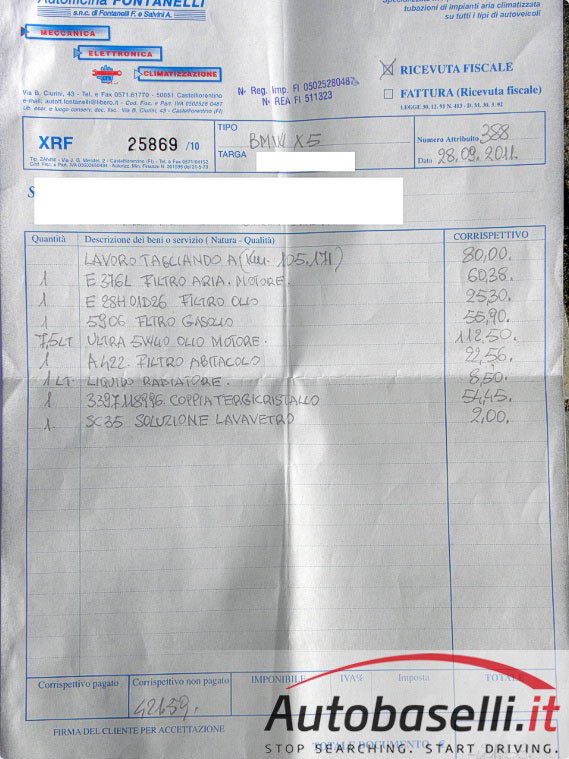 Autofficina FONTANELLI
s.n.c. di Fontanelli F. e Salvini A.
MECCANICA
ELETTRONICA
CLIMATIZZAZIONE
tubazioni di impianti aria climatizzata
su tutti i tipi di autoveicoli
Via B. Ciurini, 43 - Tel. e Fax 0571.61770 - 50051 Castelfiorentino
e-mail: autoff.fontanelli@libero.it - Cod. Fisc. e Part. IVA
N· Reg. Imp. FI 05025280487
N· REA FI 511323
RICEVUTA FISCALE
FATTURA (Ricevuta fiscale)
LEGGE 30. 12. 91 N. 413 - D.M. 30. 3. 92
XRF 25869 /10
TIPO BMW X5
TARGA
Numero Attribuito 388
Data 28.09.2011.
S
Quantità Descrizione dei beni o servizio ( Natura - Qualità) CORRISPETTIVO
LAVORO TAGLIANDO A (Km. 105.171) 80,00.
1 E 376L FILTRO ARIA. MOTORE. 60,38.
1 E 28H01D26 FILTRO OLIO 25,30.
1 5906 FLTRO GASOLIO 55,90.
7,5 LT ULTRA 5W40 OLIO MOTORE. 112,50.
1 A422. FILTRO ABITACOLO 22,56.
1 LT. LIQUIDO RADIATORE. 8,50.
1 3397118996. COPPIA TERGICRISTALLO 54,45.
1. SC35 SOLUZIONE LAVAVETRO 2,00.
Corrispettivo pagato Corrispettivo non pagato IMPONIBILE IVA% Imposta TOTALE
421,59.
FIRMA DEL CLIENTE PER ACCETTAZIONE
TOTALE DOCUMENTO €
Autobaselli.it
STOP SEARCHING. START DRIVING.